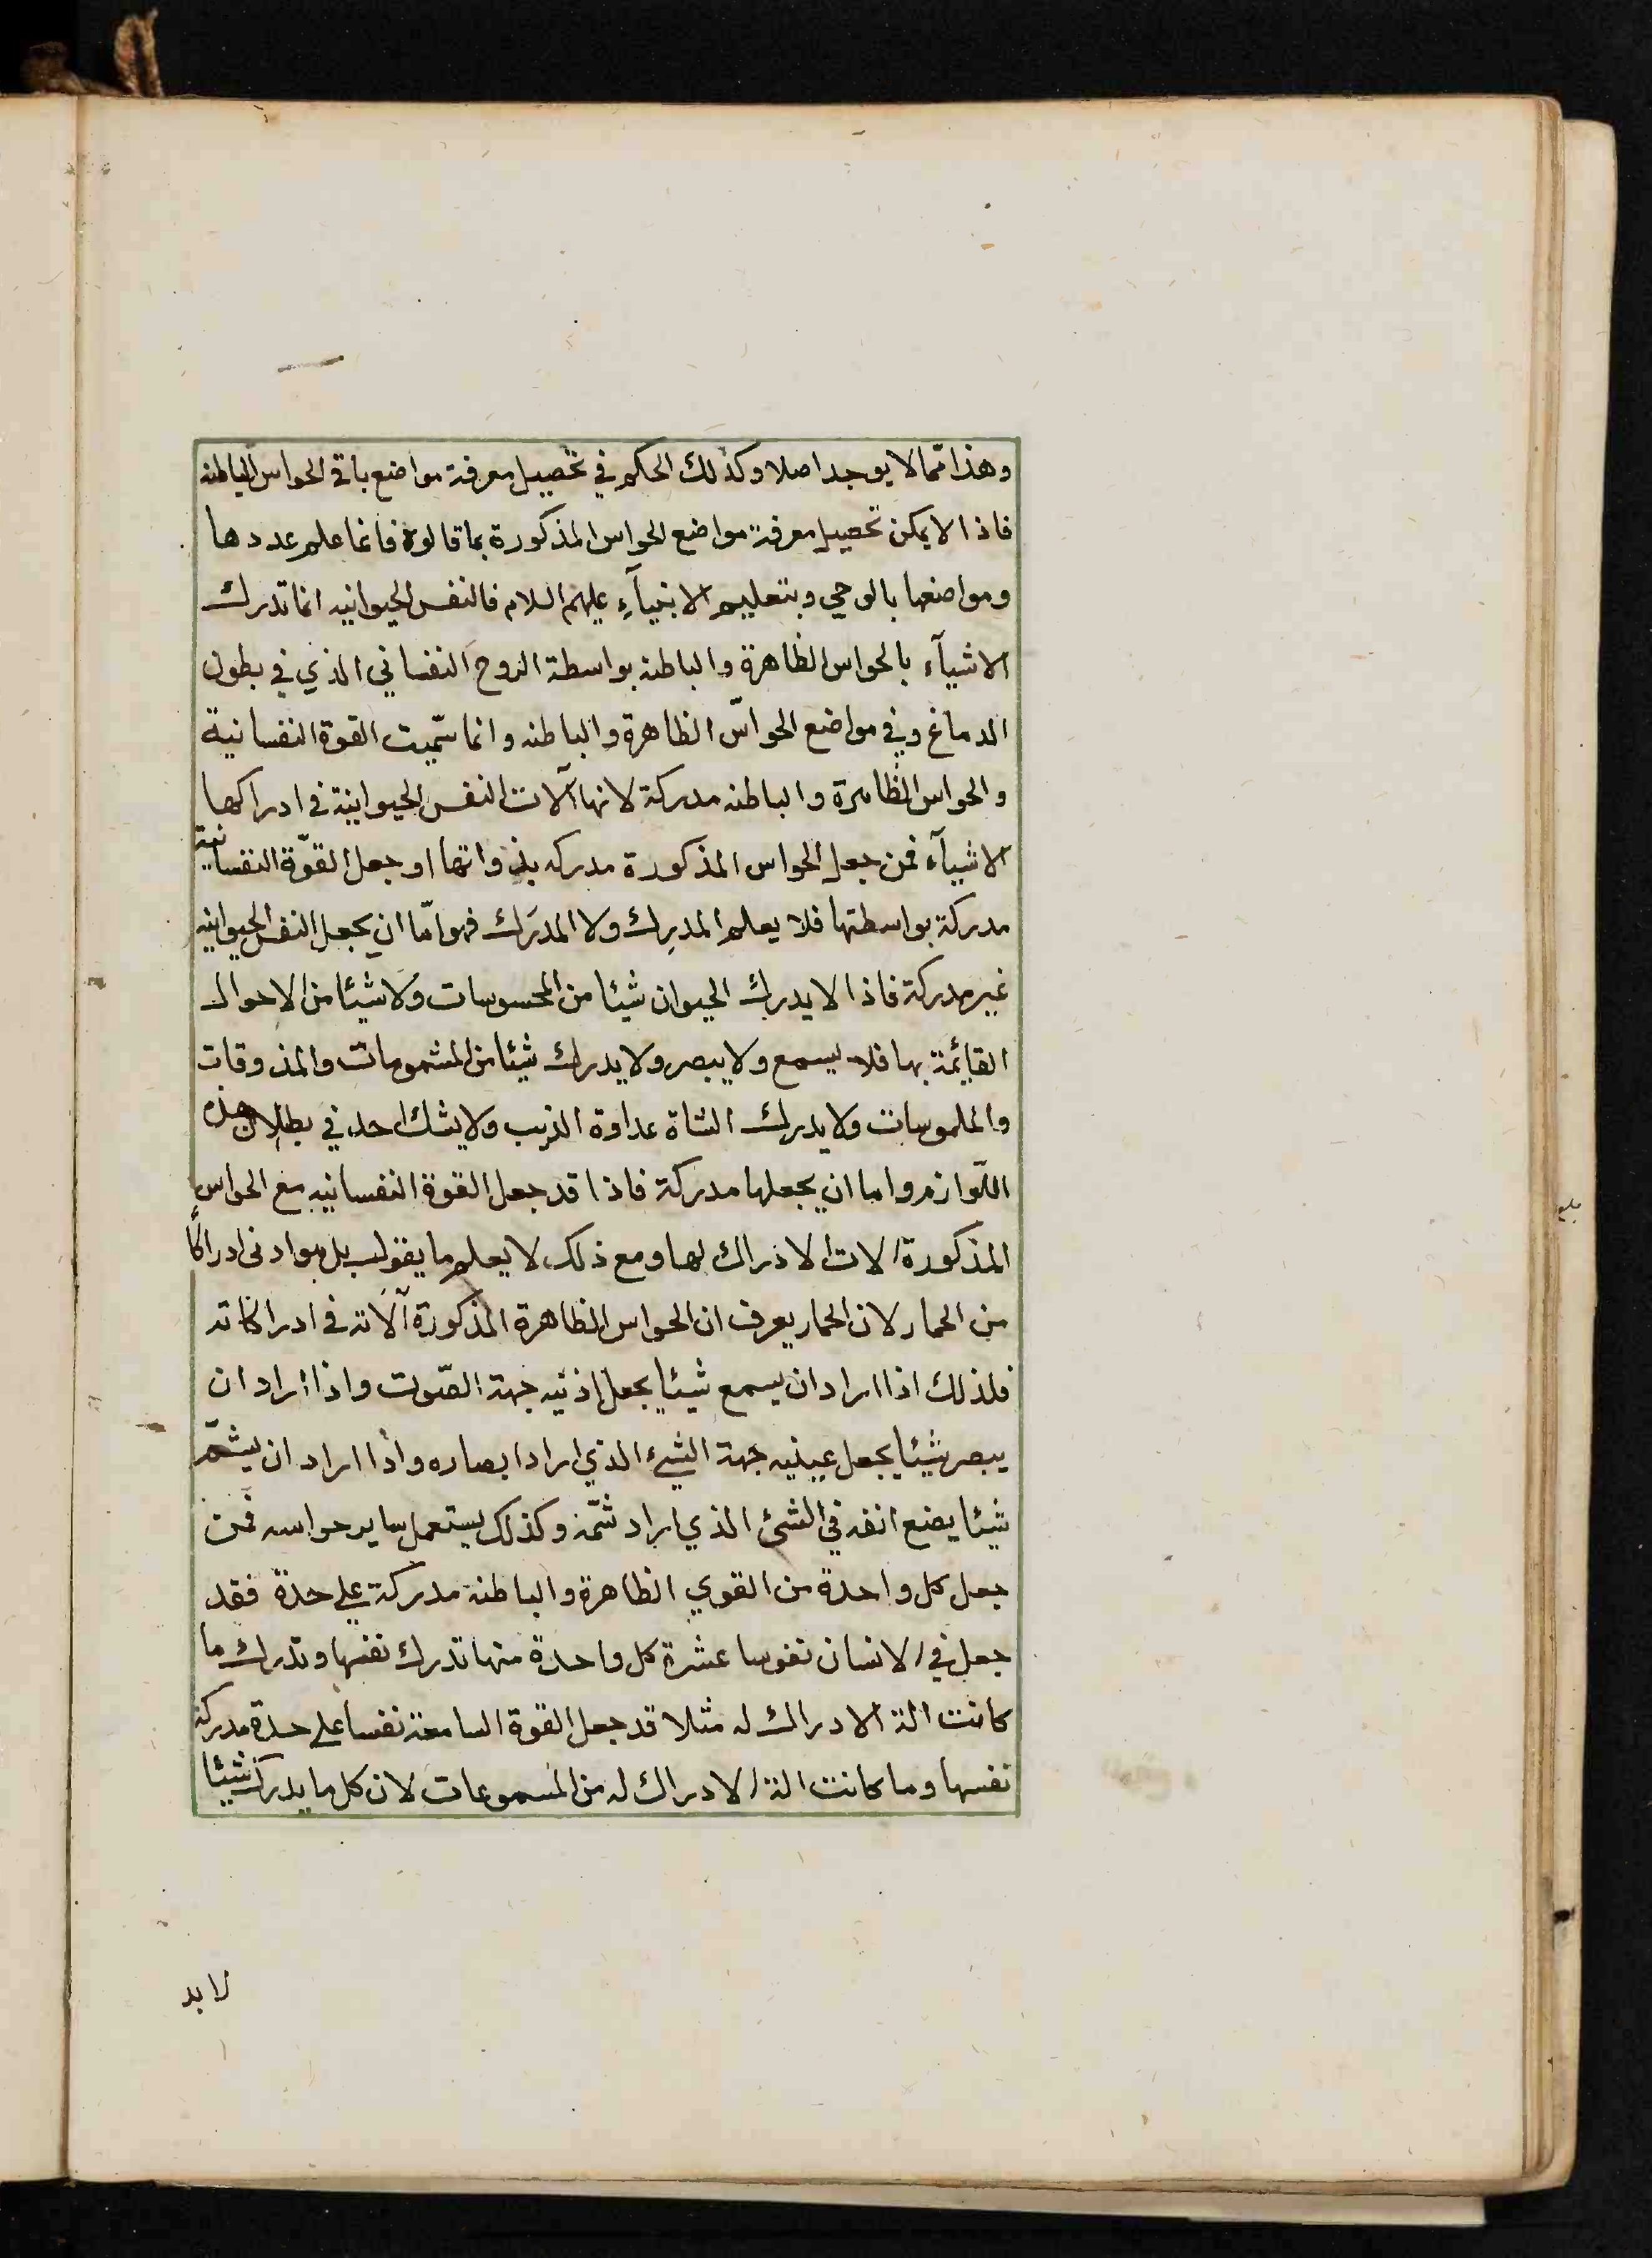 وهذا ممّا لا يوجد اصلا وكذلك الحكم في تحصيل معرفة مواضع باقي الحواس الباطنه
فاذا لا يمكن تحصيل معرفة مواضع الحواس المذكورة بما قالوه فانما علم عددها
ومواضعها بالوحي وبتعليم الانبيآءِ عليهم السلام فالنفس الحيوانيه انما تدرك
الاشيآء بالحواس الظاهرة والباطنه بواسطة الروح النفساني الذي في بطون
الدماغ وفي مواضع الحواسّ الظاهرة والباطنه وانما سمّيت القوة النفسانية
والحواس الظاهرة والباطنه مدركة لانها آلات النفس الحيوانية في ادراكها
الاشيآء فمن جعل الحواس المذكورة مدركه بذواتها او جعل القوّة النفسانية
مدركة بواسطتها فلا يعلم المدرِك ولا المدرَك فهو امّا ان يجعل النفس الحيوانيه
غير مدركة فاذا لا يدرك الحيوان شيئا من المحسوسات ولا شيئا من الاحوال
القائمة بها فلا يسمع ولا يبصر ولا يدرك شيئا من المشمومات والمذوقات
والملموسات ولا يدرك الشاة عداوة الذيب ولا يشك احد في بطلان هذه
اللّوازم واما ان يجعلها مدركة فاذا قد جعل القوة النفسانيه مع الحواس
المذكورة الات الادراك لها ومع ذلك لا يعلم ما يقول بل هو ادنى ادراكًا
من الحمار لان الحمار يعرف ان الحواس الظاهرة المذكورة آلاته في ادراكاته
فلذلك اذا اراد ان يسمع شيئا يجعل اذنيه جهة الصّوت واذا اراد ان
يبصر شيئا يجعل عينيه جهة الشيء الذي اراد ابصاره واذا اراد ان يشمّ
شيئا يضع انفه في الشئ الذي اراد شمّه وكذلك يستعمل ساير حواسه فمن
جعل كل واحدة من القوي الظاهرة والباطنة مدركة علي حدة فقد
جعل في الانسان نفوسا عشرة كل واحدة منها تدرك نفسها وتدرك ما
كانت الة الادراك له مثلا قد جعل القوة السامعة نفسا علي حدة مدركة
نفسها وما كانت الة الادراك له من المسموعات لان كل ما يدرك شيئا
لا بد